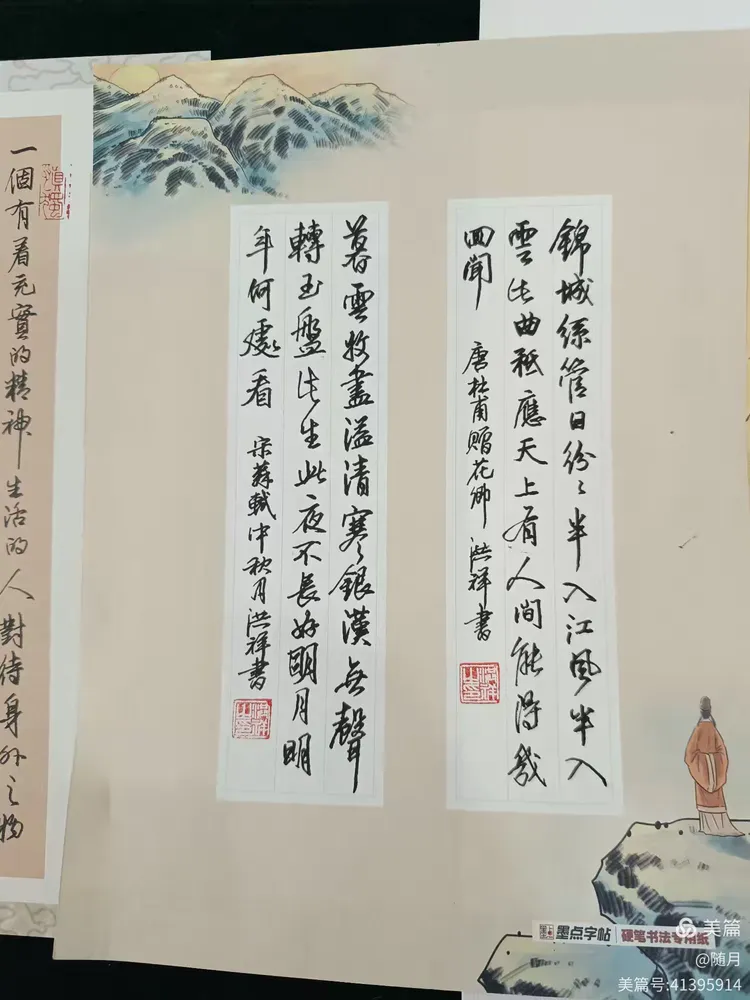 錦城絲管日紛〻半入江風半入
雲此曲秪應天上有人間能得幾
回聞 唐杜甫贈花卿 洪祥書
暮雲收盡溢清寒銀漢無聲
轉玉盤此生此夜不長好明月明
年何處看 宋蘇軾中秋月洪祥書
一個有着充實的精神生活的人對待身外之物
墨点字帖 硬笔书法专用纸
美篇
@随月
美篇号:41395914